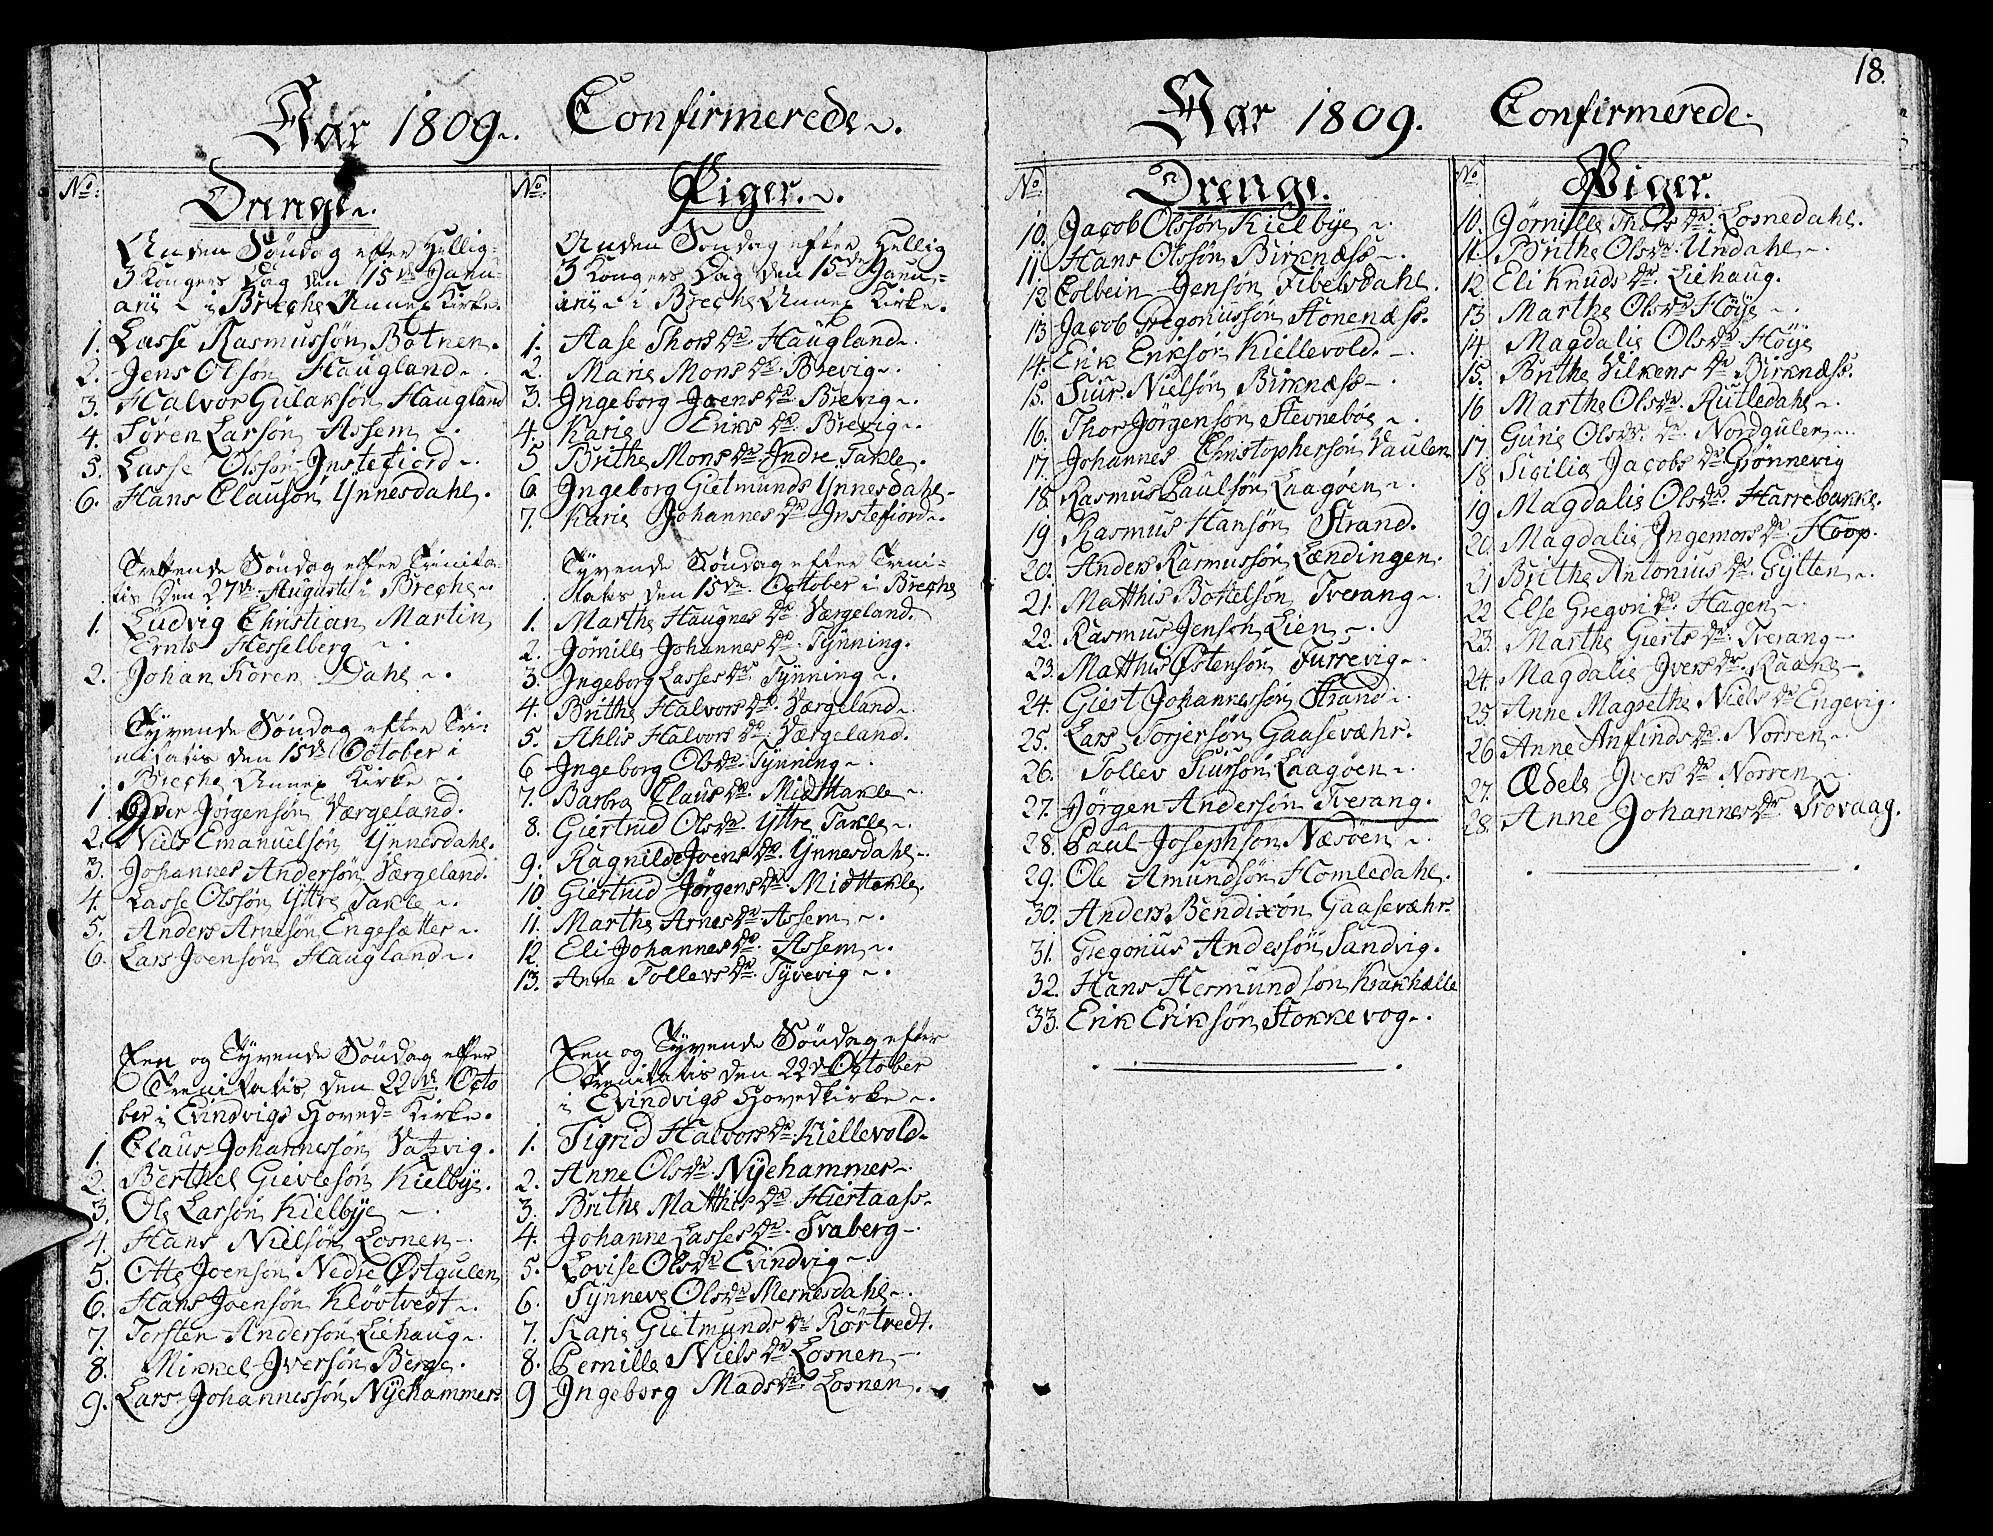 Aar 1809. Confirmerede.
No
Drenge.
Anden Søndag efter Hellig
3 Kongers Dag den 15de Janu-
arii i Breche Annex Kirke.
1. Lasse Rasmussøn Botnen.
2. Jens Olsøn Haugland.
3. Halvor Gulaksøn Haugland
4. Søren Larsøn Assem.
5. Lasse Olssøn Instefiord.
6. Hans Clausøn Ynnesdahl.
Trettende Søndag efter Trinita-
tis den 27de Augusti i Breche.
1. Ludvig Christian Martin
Ernts Hesselberg
2. Johan Koren Dahl.
Tyvende Søndag efter Tri-
nitatis den 15de October i
Breche Annex Kirke
1. Iver Jørgensøn Værgeland.
2. Niels Emanuelsøn Ynnesdahl.
3. Johannes Andersøn Værgeland.
4. Lasse Olssøn Yttre Takle.
5. Anders Arnesøn Engesætter.
6. Lars Joensøn Haugland.
Een og Tyvende Søndag efter
Trenitatis, den 22de Octo
ber i Evindvigs Hoved-Kirke.
1. Claus Johannessøn Vatzvig.
2. Berthel Gievlesøn Kielbye.
3. Ole Larsøn Kielbye
4. Hans Nielsøn Losnen.
5. Otte Joensøn Nedre Østgulen
6. Hans Joensøn Kløvtvedt.
7. Torsten Andersøn Liehaug.
8. Mikkel Iversøn Berge.
9. Lars Johannessøn Nyehammers
No
Piger.
Anden Søndag efter Hellig
3 Kongers Dag den 15de Janu-
arii i Breche Annex Kirke.
1. Aase Thors Dr. Haugland.
2. Marie Mons Dr. Brevig.
3. Ingeborg Joens Dr. Brevig.
4. Karie Eriks Dr. Brevig.
5 Brithe Mons Dr. Indre Takle.
6 Ingeborg Gietmunds Ynnesdahl
7. Karie Johannes Dr. Instefiord.
Tyvende Søndag efter Trini-
tatis den 15de October i Breche
1. Marthe Haugnes Dr. Værgeland.
2. Jørnille Johannes Dr. Tynning.
3. Ingeborg Lasses Dr. Tynning.
4. Brithe Halvors Dr. Værgeland.
5. Ahlis Halvors Dr. Værgeland.
6 Ingeborg Ols Dr. Tynning.
7. Barbra Claus Dr. MidtTakle.
8. Giertrud Ols Dr. Yttre Takle.
9. Ragnilde Joens Dr. Ynnesdahl.
10 Giertrud Jørgens Dr. MidtTakle.
11. Marthe Arnes Dr. Assem.
12. Eli Johannes Dr. Assem.
13. Anne Tollevs Dr. Tyvevig.
Een og Tyvende Søndag efter
Trenitatis den 22de October
i Evindvigs Hovedkirke.
1. Sigrid Halvors Dr. Kiellevold.
2. Anne Ols Dr. Nyehammer.
3. Brithe Matthis Dr. Hiertaass.
4. Johanne Lasses Dr. Svaberg.
5. Lovise Ols Dr. Evindvig.
6. Synneve Ols Dr. Mernesdahl.
7. Karie Gietmunds Dr. Rørtvedt.
8. Pernille Niels Dr. Losnen
9 Ingeborg Mads Dr. Losnen.
18.
Aar 1809. Confirmerede.
No
Drenge.
10. Jacob Olssøn Kielbye.
11. Hans Olssøn Birknæss.
12 Colbein Jensøn Fibelsdahl.
13 Jacob Gregoriussøn Stonenæss.
14. Erik Eriksøn Kiellevold.
15. Siur Nielsøn Birknæss.
16. Thor Jørgensøn Stevnebøe.
17. Johannes Christophersøn Vaulen
18. Rasmus Paulsøn Laagøen.
19 Rasmus Hansøn Strand.
20. Anders Rasmussøn Lændingen.
21. Matthis Bottelsøn Tverang.
22. Rasmus Jensøn Lien.
23. Matthis Østensøn Furrevig.
24. Giert Johannessøn Strand.
25. Lars Torjersøn Gaasevæhr.
26. Tollev Siursøn Laagøen.
27. Jørgen Andersøn Tverang.
28. Paul Josephsøn Næsøen.
29. Ole Amundsøn Homledahl.
30. Anders Bendixøn Gaasevæhr.
31. Gregorius Anderssøn Sandvig.
32. Hans Hermundsøn Krakhælle
33. Erik Eriksøn Stokkevog.
No
Piger.
10. Jørnille Thors Dr. Losnedahl.
11. Brithe Ols Dr. Undahl.
12. Eli Knuds Dr. Liehaug.
13. Marthe Ols Dr. Høye
14. Magdalis Ols Dr. Høye
15. Brithe Vilkens Dr. Birknæss.
16 Marthe Ols Dr. Rutledahl.
17. Gurie Ols Dr. Nordgulen.
18 Sicilia Jacobs Dr. Grønnevig
19 Magdalis Ols Dr. Harrebakke.
20. Magdalis Ingemors Dr. Hoop.
21 Brithe Antonius Dr. Gylten.
22 Else Gregori Dr. Hagen.
23. Marthe Gierts Dr. Tverang.
24. Magdalis Ivers Dr. Raane.
25. Anne Magrethe Niels Dr. Engevig.
26 Anne Anfinds Dr. Norren.
27. Ædele Ivers Dr. Norren.
28. Anne Johannes Dr. Trovaag.